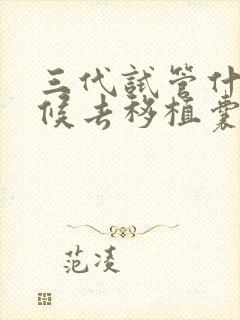 三代試管什
候去移植囊
范凌